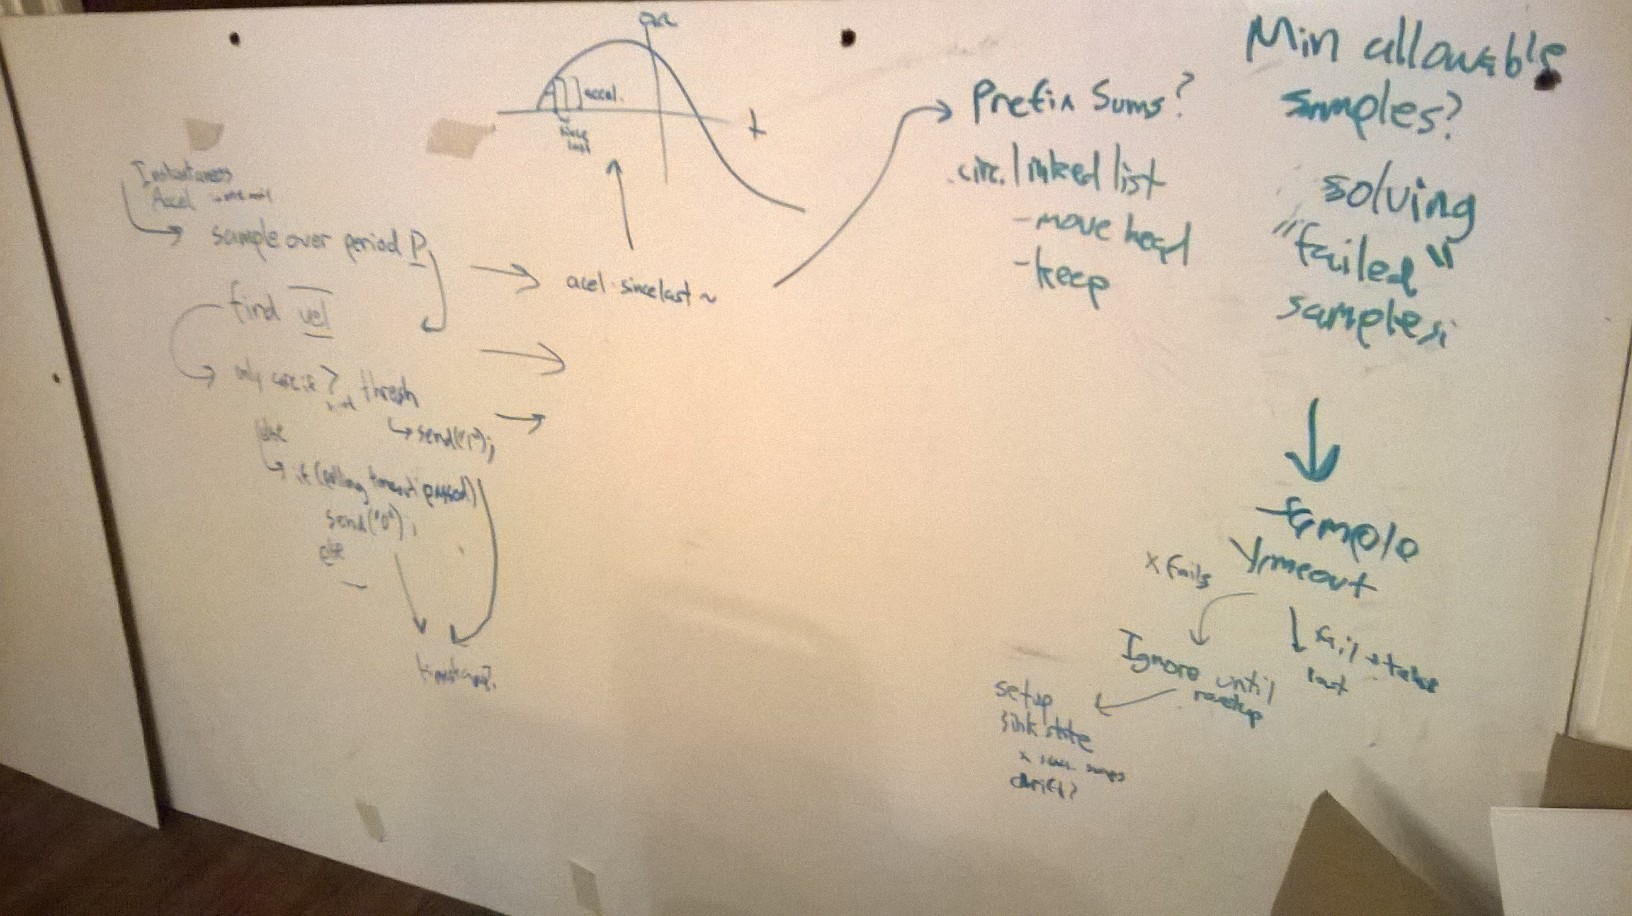 accel.
since
last
t
Instantaneous
Accel
sample over period P
find vel
only care if > thresh
send("1");
else
if (polling timeout passed)
send("0");
else
timestamp?
accel since last ~
Prefix Sums?
circ. linked list
- move head
- keep
Min allowable
samples?
solving
"failed"
samples:
sample
timeout
x fails
Ignore until
fail → take
last
setup
sink state
drift?